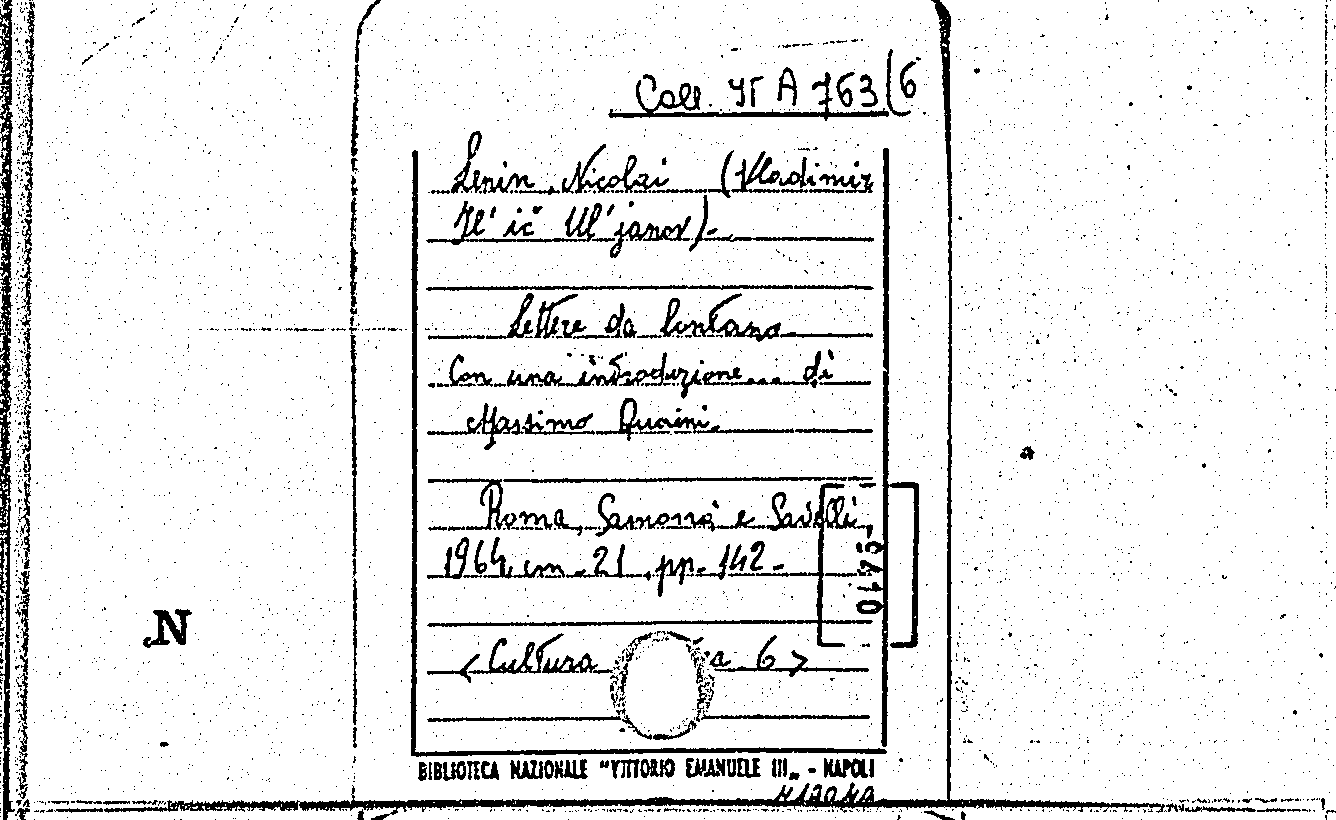 Coll. VI A 763/6
Lenin, Nicolai (Vladimir
Il'ič Ul'janov)-.
Lettere da lontano.
Con una introduzione... di
Massimo Quaini.
Roma, Samonà e Savelli,
1964, cm. 21, pp. 142-
0475-
<Cultura 6>
N
BIBLIOTECA NAZIONALE "VITTORIO EMANUELE III„ - NAPOLI